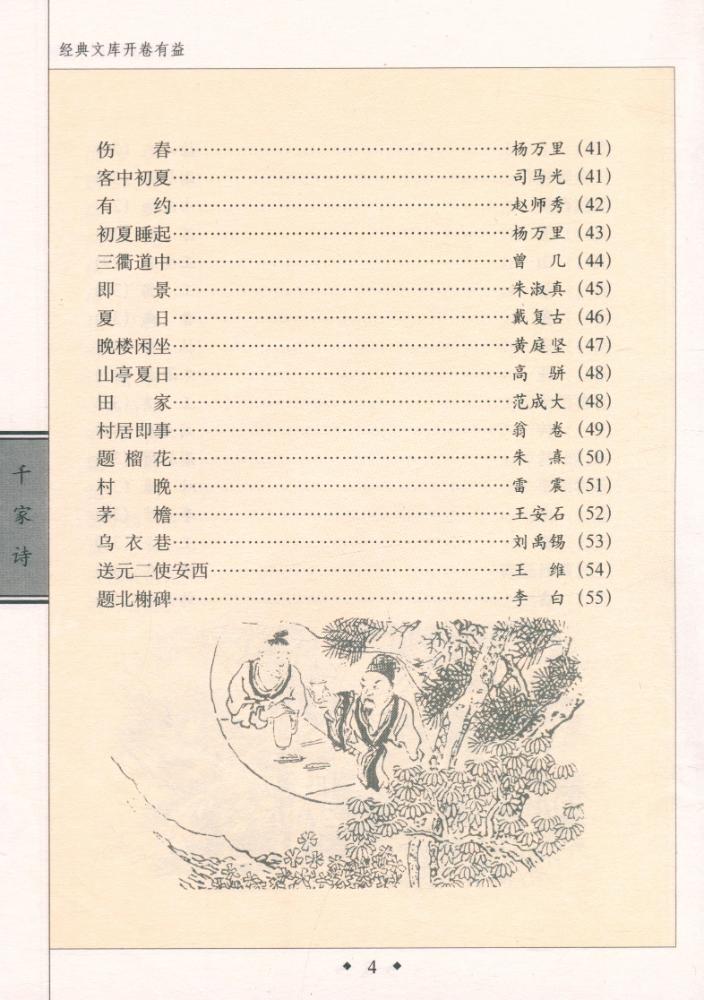 经典文库开卷有益
伤 春……杨万里 (41)
客中初夏……司马光 (41)
有 约……赵师秀 (42)
初夏睡起……杨万里 (43)
三衢道中……曾 几 (44)
即 景……朱淑真 (45)
夏 日……戴复古 (46)
晚楼闲坐……黄庭坚 (47)
山亭夏日……高 骈 (48)
田 家……范成大 (48)
村居即事……翁 卷 (49)
题 榴 花……朱 熹 (50)
村 晚……雷 震 (51)
茅 檐……王安石 (52)
乌 衣 巷……刘禹锡 (53)
送元二使安西……王 维 (54)
题北榭碑……李 白 (55)
千家诗
4